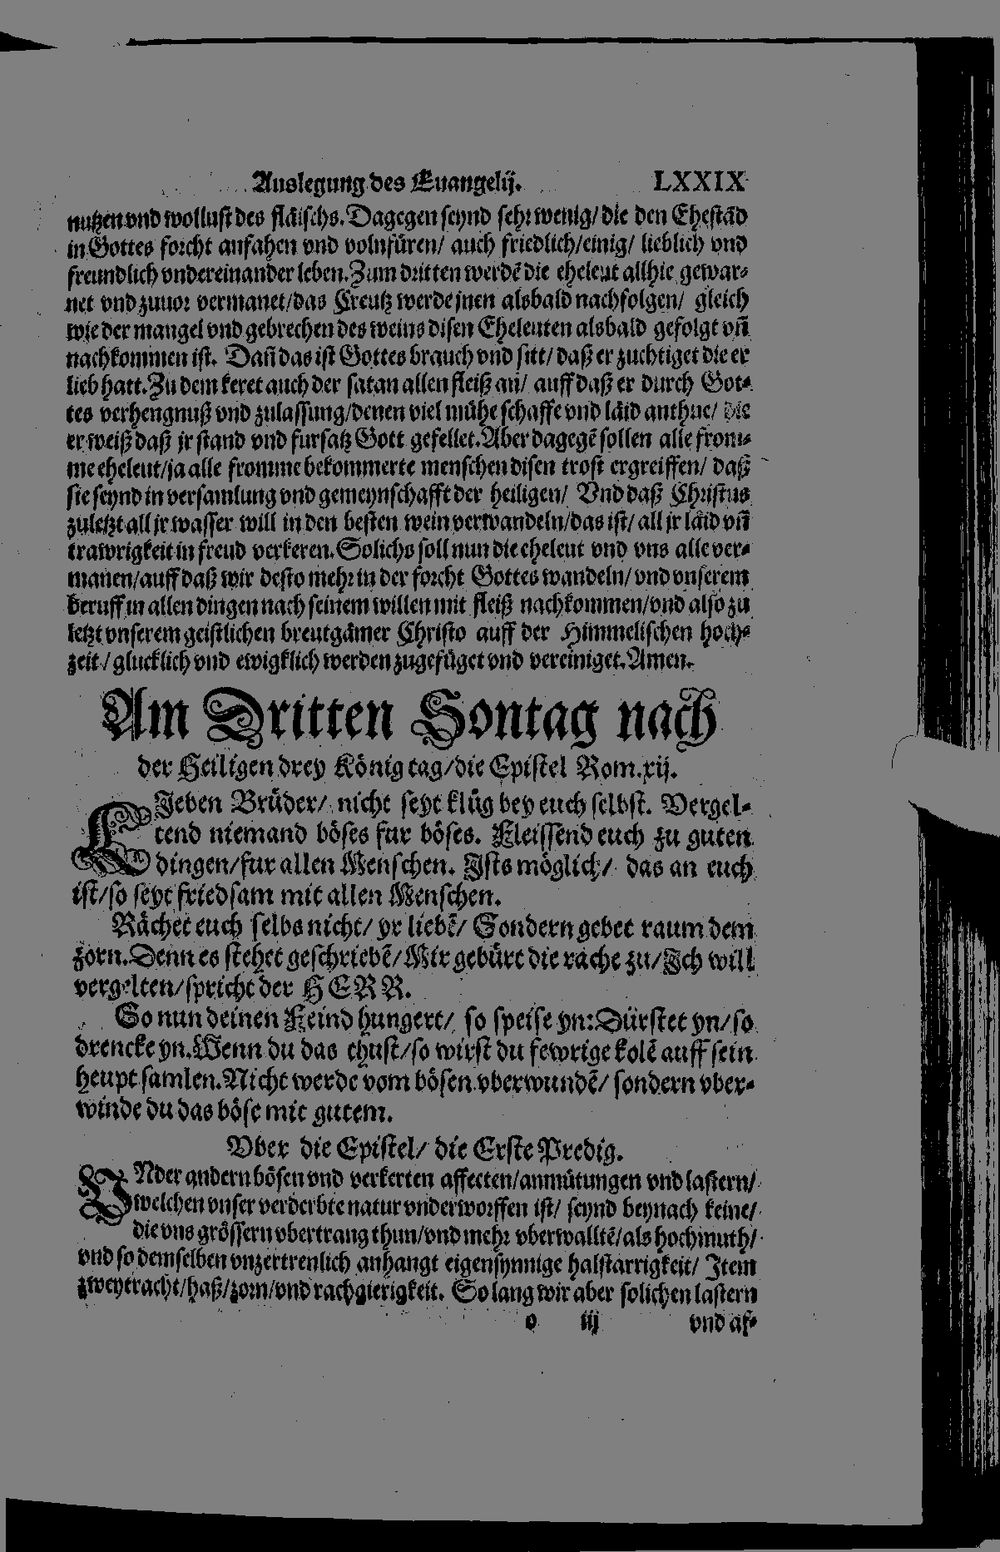 Auslegung des Euangelij. LXXIX
nutzen vnd wollust des fläischs. Dagegen seynd sehr wenig/ die den Ehestād
in Gottes forcht anfahen vnd volnfüren/ auch friedlich/einig/ lieblich vnd
freundlich vndereinander leben. Zum dritten werdē die eheleut allhie gewar-
net vnd zuuor vermanet/das Creutz werde jnen alsbald nachfolgen/ gleich
wie der mangel vnd gebrechen des weins disen Eheleuten alsbald gefolgt vñ
nachkommen ist. Dañ das ist Gottes brauch vnd sitt/ daß er zuchtiget die er
lieb hatt. Zu dem keret auch der satan allen fleiß an/ auff daß er durch Got-
tes verhengnuß vnd zulassung/denen viel mühe schaffe vnd läid anthue/ die
er weiß daß jr stand vnd fursatz Gott gefellet. Aber dagegē sollen alle from-
me eheleut/ja alle fromme bekommerte menschen disen trost ergreiffen/ daß
sie seynd in versamlung vnd gemeynschafft der heiligen/ Vnd daß Christus
zuletzt all jr wasser will in den besten wein verwandeln/das ist/ all jr läid vñ
trawrigkeit in freud verkeren. Solichs soll nun die eheleut vnd vns alle ver-
manen/auff daß wir desto mehr in der forcht Gottes wandeln/ vnd vnserem
beruff in allen dingen nach seinem willen mit fleiß nachkommen/vnd also zu
letzt vnserem geistlichen breutgämer Christo auff der Himmelischen hoch-
zeit/ glucklich vnd ewigklich werden zugefüget vnd vereiniget. Amen.
Am Dritten Sontag nach
der Heiligen drey König tag/die Epistel Rom.xij.
LJeben Brüder/ nicht seyt klüg bey euch selbst. Vergel-
tend niemand böses fur böses. Fleissend euch zu guten
dingen/fur allen Menschen. Ists möglich/ das an euch
ist/so seyt friedsam mit allen Menschen.
Rächet euch selbs nicht/ yr liebē/ Sondern gebet raum dem
zorn. Denn es stehet geschriebē/Mir gebürt die rache zu/Ich will
vergelten/spricht der HERR.
So nun deinen Feind hungert/ so speise yn: Dürstet yn/so
drencke yn. Wenn du das thust/so wirst du fewrige kolē auff sein
heupt samlen. Nicht werde vom bösen vberwundē/ sondern vber-
winde du das böse mit gutem.
Vber die Epistel/ die Erste Predig.
VNder andern bösen vnd verkerten affecten/anmütungen vnd lastern/
welchen vnser verderbte natur vnderworffen ist/ seynd beynach keine/
die vns grössern vbertrang thun/vnd mehr vberwalltē/als hochmuth/
vnd so demselben vnzertrenlich anhangt eigensynnige halstarrigkeit/ Item
zweytracht/haß/zorn/vnd rachgierigkeit. So lang wir aber solichen lastern
o iij vnd af-